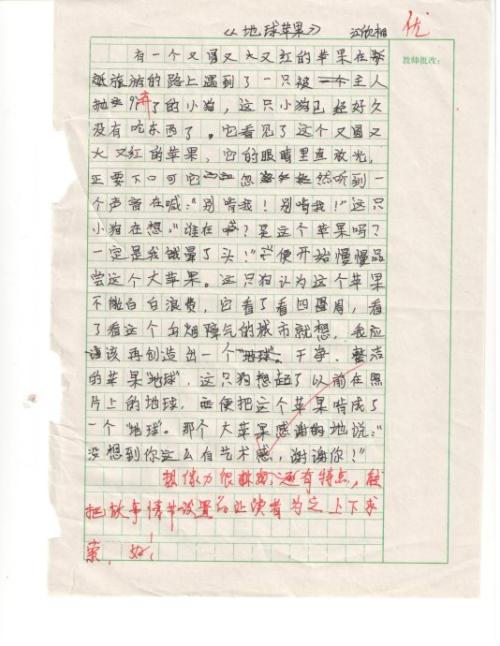 《地球苹果》 优
教师批改：
有一个又圆又大又红的苹果在
旅游的路上遇到了一只被主人
弃了的小狗，这只小狗已经好久
没有吃东西了。它看见了这个又圆又
大又红的苹果，它的眼睛里直放光，
正要下口可它忽然听到一
个声音在喊：“别啃我！别啃我！”这只
小狗在想：“谁在喊？是这个苹果吗？
一定是我饿晕了头！”便开始慢慢品
尝这个大苹果。这只狗认为这个苹果
不能白白浪费，它看了看四周，看
了看这个乌烟障气的城市就想，我应
该再创造出一个“地球”。干净、整洁
的苹果“地球”，这只狗想起了以前在照
片上的地球，便把这个苹果啃成了
一个“地球”。那个大苹果感谢地说：“
没想到你这么有艺术感，谢谢你？”
想像力很 还有特点，能
把故事情节设置 让读者为之上下求
索，好！